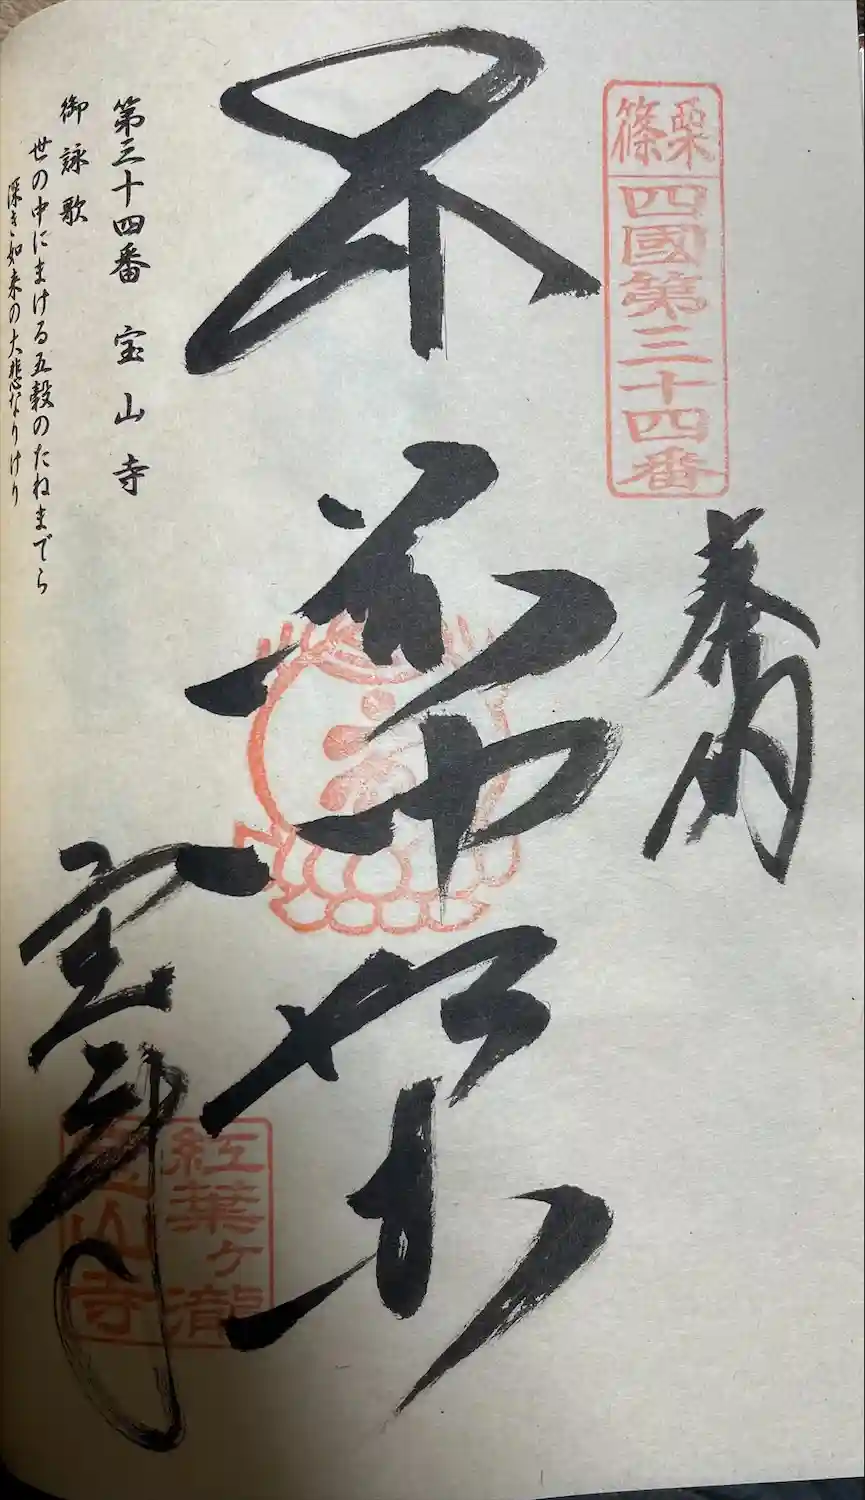 篠栗
四國第三十四番
奉納
薬師如来
宝山寺
紅葉ヶ瀧
山寺
第三十四番 宝山寺
御詠歌
世の中にまける五穀のたねまでら
深き如来の大悲なりけり